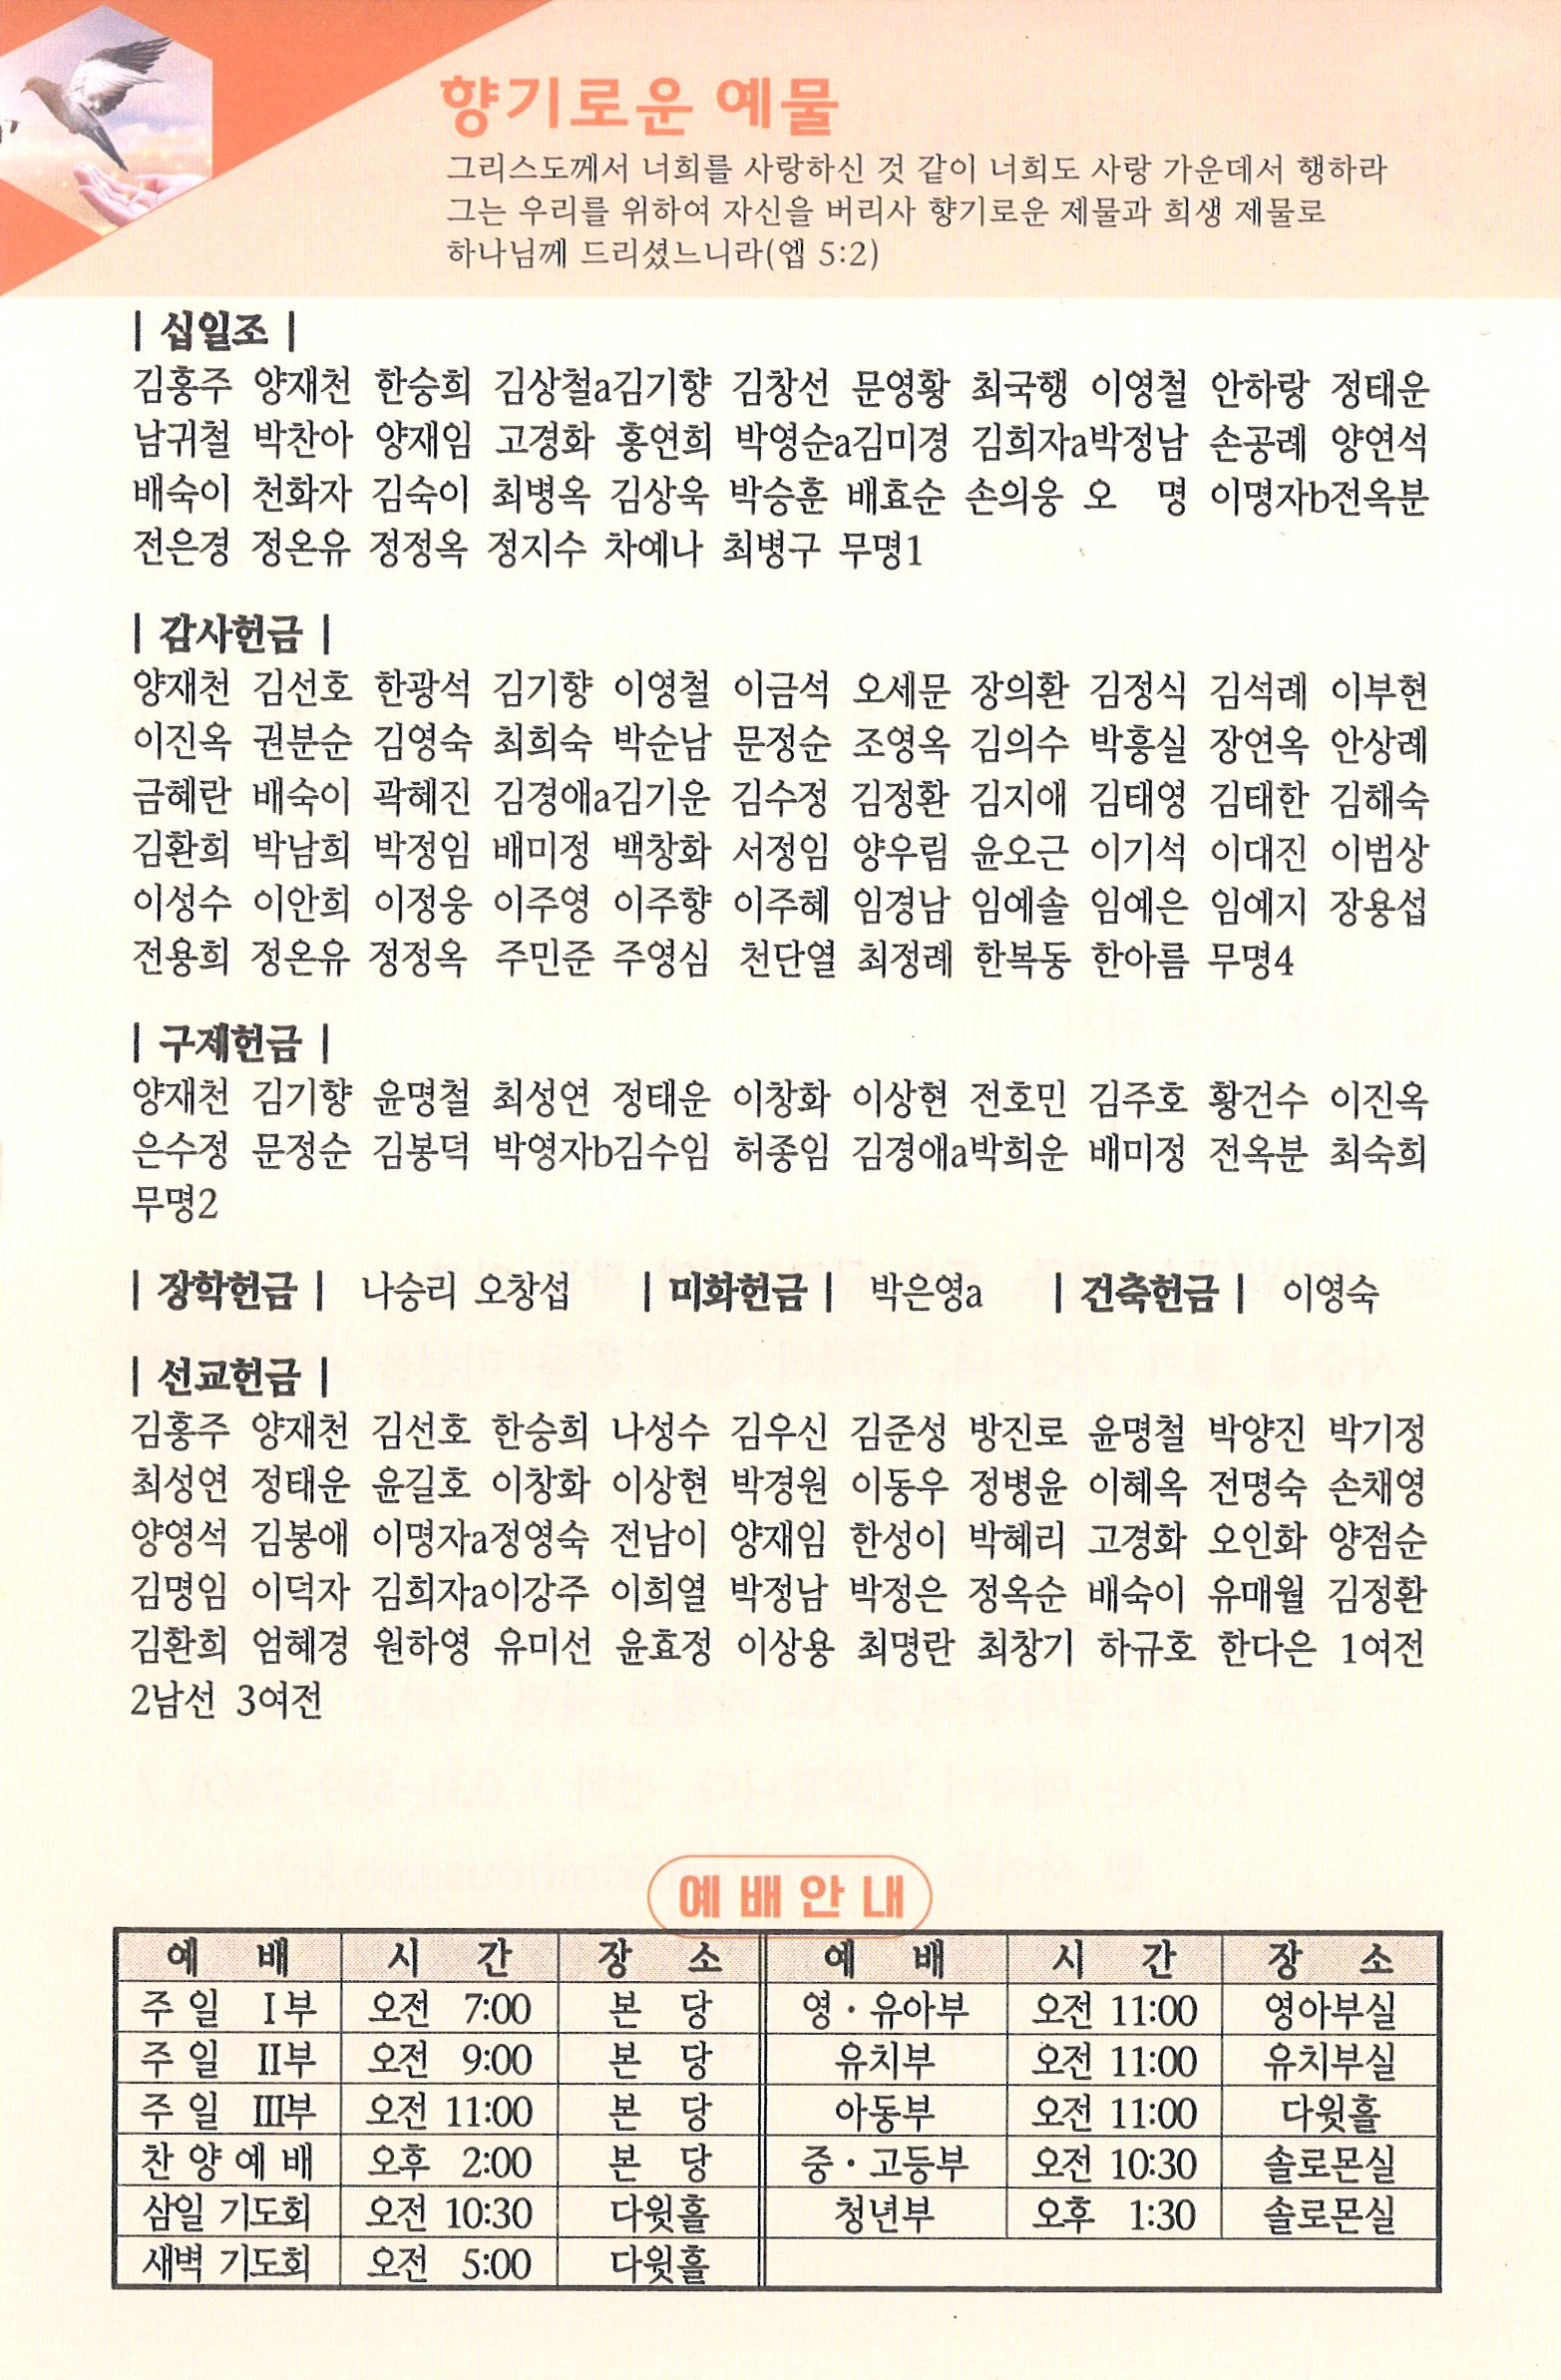 향기로운 예물
그리스도께서 너희를 사랑하신 것 같이 너희도 사랑 가운데서 행하라
그는 우리를 위하여 자신을 버리사 향기로운 제물과 희생 제물로
하나님께 드리셨느니라(엡 5:2)
| 십일조 |
김홍주 양재천 한승희 김상철a김기향 김창선 문영황 최국행 이영철 안하랑 정태운
남귀철 박찬아 양재임 고경화 홍연희 박영순a김미경 김희자a박정남 손공례 양연석
배숙이 천화자 김숙이 최병옥 김상욱 박승훈 배효순 손의웅 오 명 이명자b전옥분
전은경 정온유 정정옥 정지수 차예나 최병구 무명1
| 감사헌금 |
양재천 김선호 한광석 김기향 이영철 이금석 오세문 장의환 김정식 김석례 이부현
이진옥 권분순 김영숙 최희숙 박순남 문정순 조영옥 김의수 박흥실 장연옥 안상례
금혜란 배숙이 곽혜진 김경애a김기운 김수정 김정환 김지애 김태영 김태한 김해숙
김환희 박남희 박정임 배미정 백창화 서정임 양우림 윤오근 이기석 이대진 이범상
이성수 이안희 이정웅 이주영 이주향 이주혜 임경남 임예솔 임예은 임예지 장용섭
전용희 정온유 정정옥 주민준 주영심 천단열 최정례 한복동 한아름 무명4
| 구제헌금 |
양재천 김기향 윤명철 최성연 정태운 이창화 이상현 전호민 김주호 황건수 이진옥
은수정 문정순 김봉덕 박영자b김수임 허종임 김경애a박희운 배미정 전옥분 최숙희
무명2
| 장학헌금 | 나승리 오창섭 | 미화헌금 | 박은영a | 건축헌금 | 이영숙
| 선교헌금 |
김홍주 양재천 김선호 한승희 나성수 김우신 김준성 방진로 윤명철 박양진 박기정
최성연 정태운 윤길호 이창화 이상현 박경원 이동우 정병윤 이혜옥 전명숙 손채영
양영석 김봉애 이명자a정영숙 전남이 양재임 한성이 박혜리 고경화 오인화 양점순
김명임 이덕자 김희자a이강주 이희열 박정남 박정은 정옥순 배숙이 유매월 김정환
김환희 엄혜경 원하영 유미선 윤효정 이상용 최명란 최창기 하규호 한다은 1여전
2남선 3여전
예배안내
예 배 시 간 장 소 예 배 시 간 장 소
주 일 Ⅰ부 오전 7:00 본 당 영·유아부 오전 11:00 영아부실
주 일 Ⅱ부 오전 9:00 본 당 유치부 오전 11:00 유치부실
주 일 Ⅲ부 오전 11:00 본 당 아동부 오전 11:00 다윗홀
찬 양 예 배 오후 2:00 본 당 중·고등부 오전 10:30 솔로몬실
삼일 기도회 오전 10:30 다윗홀 청년부 오후 1:30 솔로몬실
새벽 기도회 오전 5:00 다윗홀